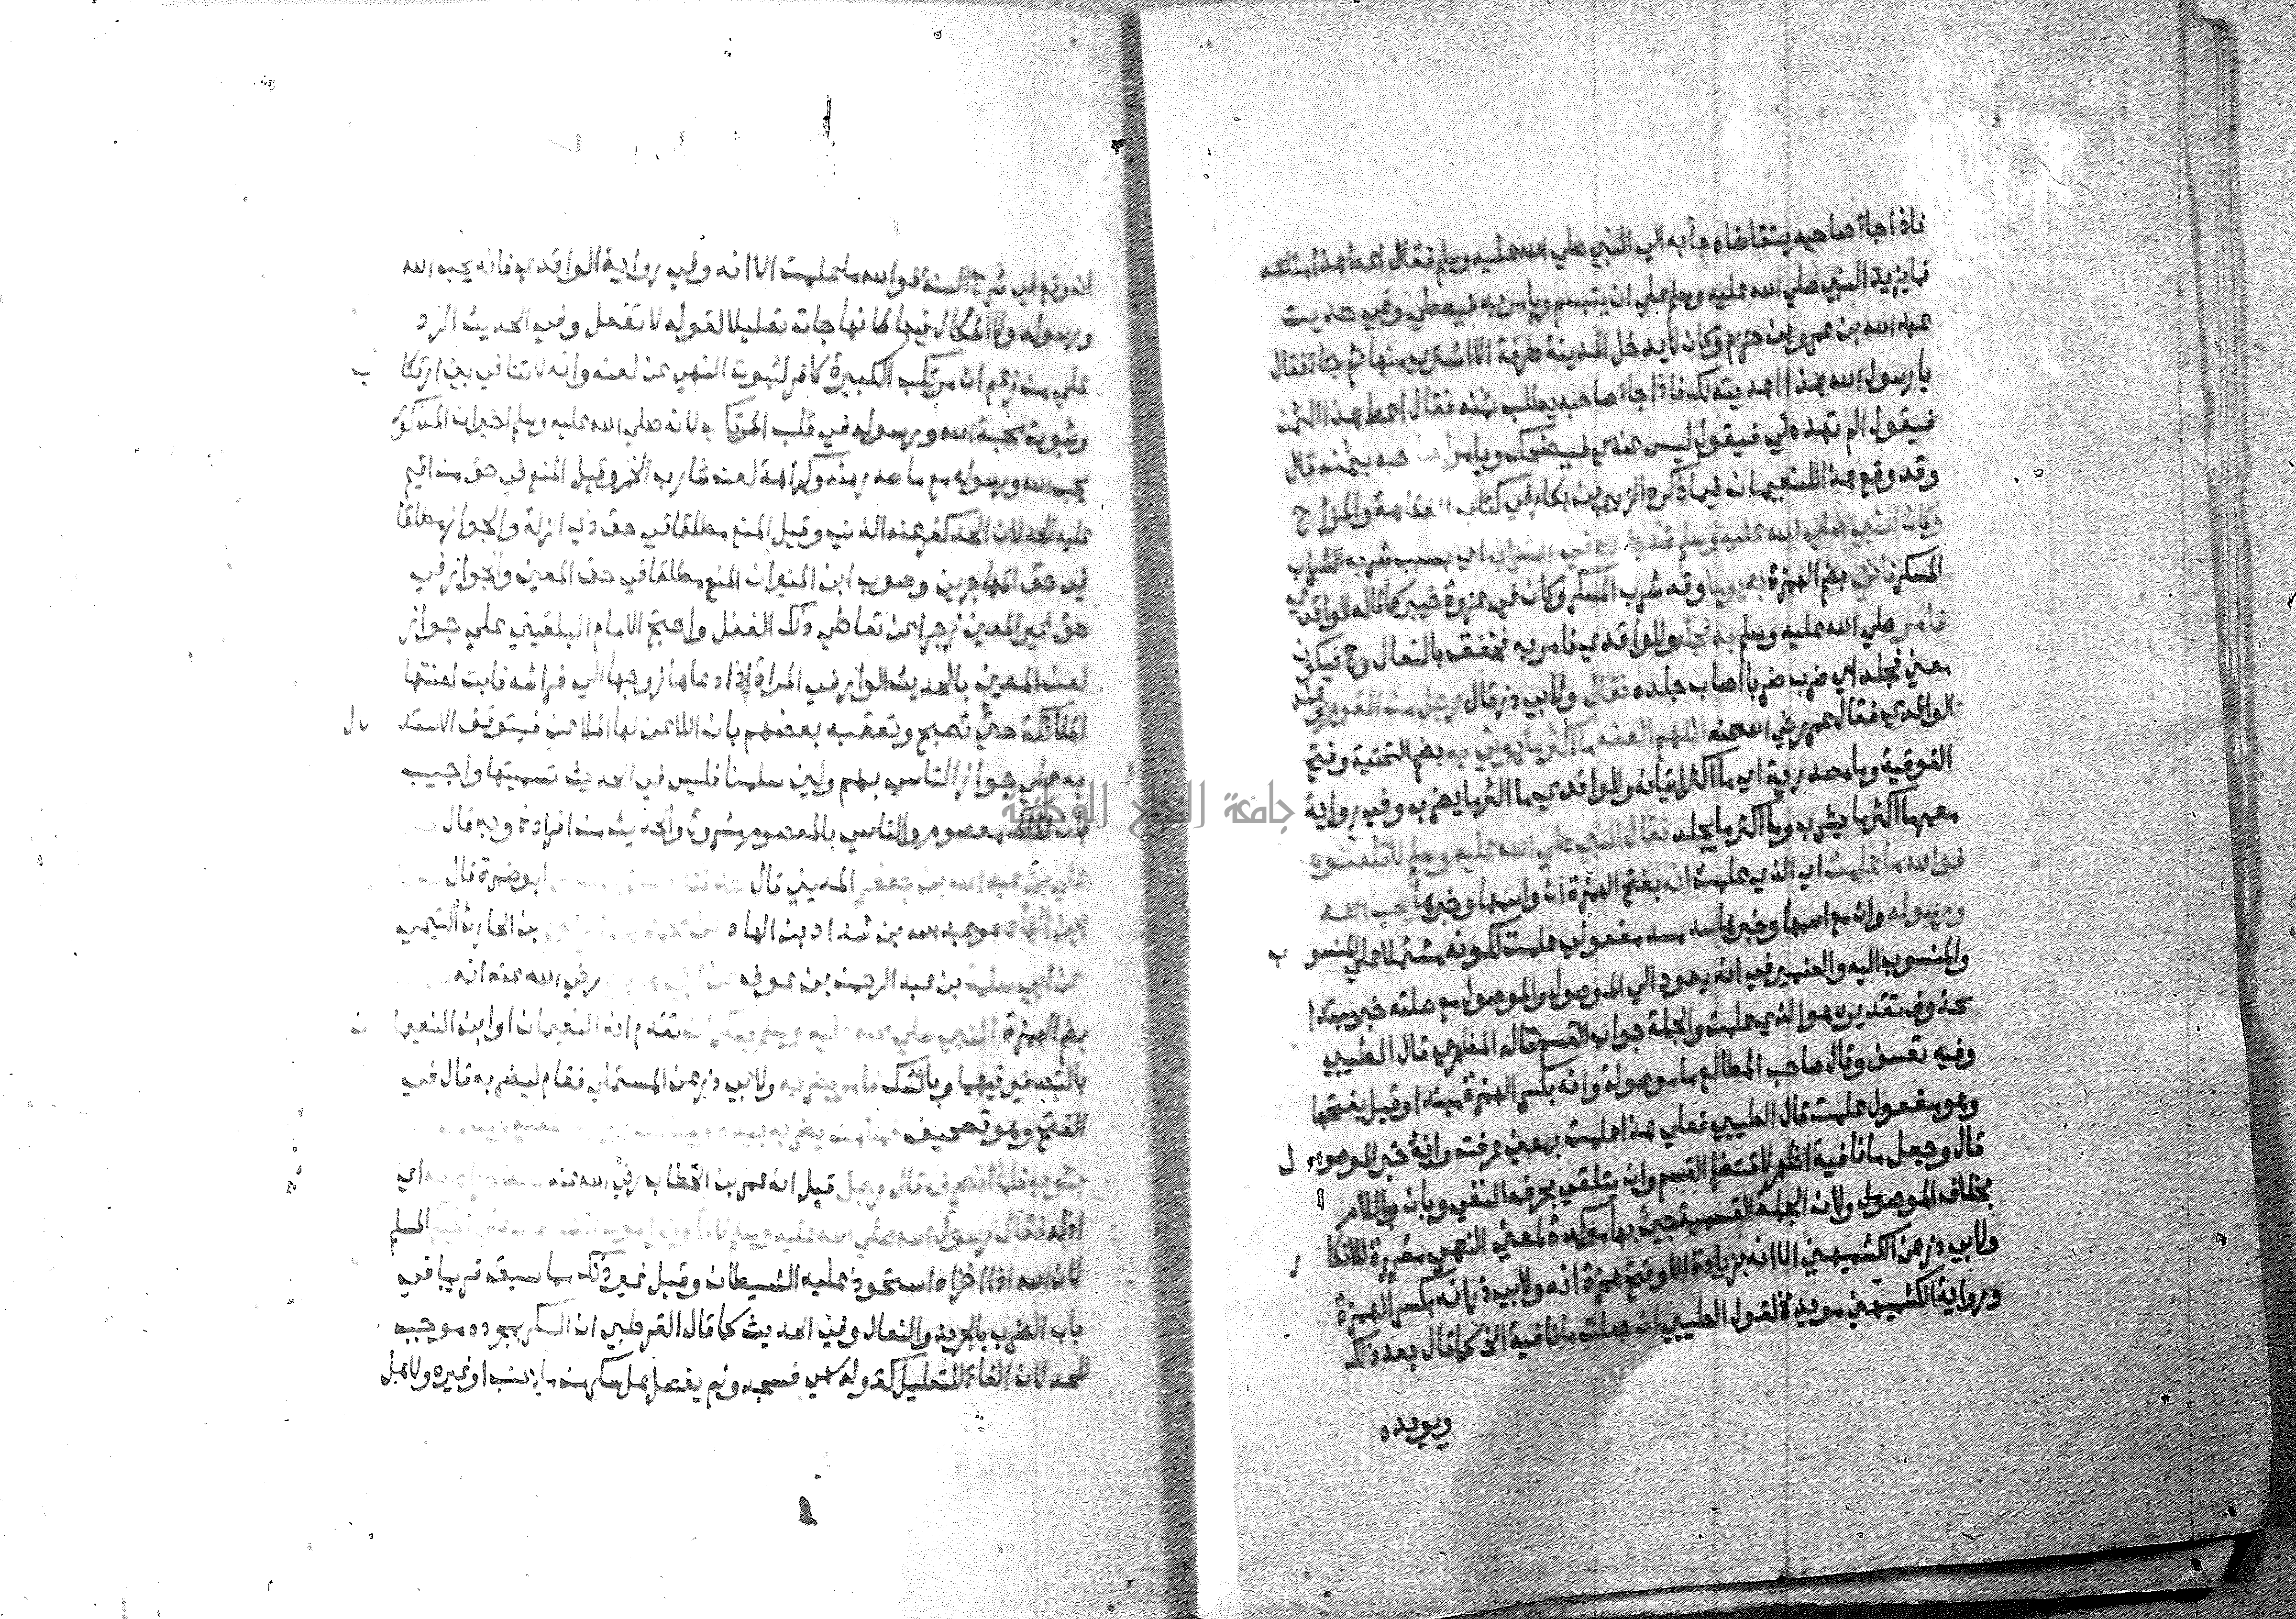 فاذا جاء صاحبه يتقاضاه جآ به الى النبي صلي الله عليه وسلم فقال اعط هذا متاعه
فما يزيد النبي صلي الله عليه وسلم علي ان يتبسم ويامر به فيعطي وفي حديث
عبد الله بن عمرو بن حزم وكان لا يدخل المدينة طرفة الا اشتري منها ثم جا فقال
يا رسول الله هذا اهديته لك فاذا جاء صاحبه يطلب ثمنه فقال اعط هذا الثمن
فيقول الم تهده لي فيقول ليس عندي فيضحك ويامر لصاحبه بثمنه قال
وقد وقع عند النعيمان فيما ذكره الزبير بن بكار في كتاب الفكاهة والمزاح
وكان النبي صلي الله عليه وسلم قد جلده في الشراب اي بسبب شربه الشراب
المسكر فاتي بضم الهمزة به يوما وقد شرب المسكر وكان في غزوة خيبر كما قاله الواقدي
فامر صلي الله عليه وسلم به فجلد وللواقدي فامر به فخفق بالنعال وح فيكون
معني فجلد اي ضرب ضربا اصاب جلده فقال ولابي ذر قال رجل من القوم وعند
الواقدي فقال عمر رضي الله عنه اللهم العنه ما اكثر ما يوتي به بضم التحتية وفتح
الفوقية وما مصدرية اي ما اكثر اتيانه وللواقدي ما اكثر ما يضرب وفي رواية
معمر ما اكثر ما يشرب وما اكثر ما يجلد فقال النبي صلي الله عليه وسلم لا تلعنوه
فوالله ما علمت اي الذي علمت انه بفتح الهمزة ان واسمها وخبرها يحب الله
ورسوله وان مع اسمها وخبرها سد مسد مفعولي علمت لكونه مشتملا علي المنسوب
والمنسوب اليه والضمير في انه يعود الي الموصول والموصول مع صلته خبر مبتدا
محذوف تقديره هو الذي علمت والجملة جواب القسم قاله المظهري قال الطيبي
وفيه تعسف وقال صاحب المطالع ما موصولة وانه بكسر الهمزة مبتدا وقيل بفتحها
وهو مفعول علمت قال الطيبي فعلي هذا علمت بمعني عرفت وانه خبر الموصول
قال وجعل ما نافية اظهر لاقتضا القسم وان يتلقي بحرف النفي وبان وباللام
بخلاف الموصول ولان الجملة القسمية جيئ بها موكدة لمعني النهي مقررة للانكار
ولابي ذر عن الكشميهني الا انه بزيادة الا وفتح همزة انه ولابي ذر انه بكسر الهمزة
ورواية الكشميهني مويدة لقول الطيبي ان جعلت ما نافية الخ كما قال بعد ذلك
ويويده
انه وقع في شرح السنة فوالله ما علمت الا انه وفي رواية الواقدي فانه يحب الله
ورسوله ولا اشكال فيها لانها جات تعليلا لقوله لا تفعل وفي الحديث الرد
علي من زعم ان مرتكب الكبيرة كافر لثبوت النهي عن لعنه وانه لا تنافي بين ارتكاب
وثبوت محبة الله ورسوله في قلب المرتكب لانه صلي الله عليه وسلم اخبر ان المذكور
يحب الله ورسوله مع ما صدر منه وكراهة لعن شارب الخمر وقيل المنع في حق من اقيم
عليه الحد لان الحد كفر عنه الذنب وقيل المنع مطلقا في حق ذي الزلة والجواز مطلقا
في حق المجاهرين وصوب ابن المنير ان المنع مطلقا في حق المعين والجواز في
حق غير المعين زجرا عن تعاطي ذلك الفعل واحتج الامام البلقيني علي جواز
لعن المعين بالحديث الوارد في المراة اذا دعاها زوجها الي فراشه فابت لعنتها
الملائكة حتي تصبح وتعقبه بعضهم بان اللاعن لها الملائكة فيتوقف الاستدلال
به علي جواز التاسي بهم ولين سلمنا فليس في الحديث تسميتها واجيب
بان الملك معصوم والتاسي بالمعصوم مشروع والحديث من افراده وبه قال
علي بن عبد الله بن جعفر المديني قال ابو ضمرة قال
ابن الهاد هو عبد الله بن شداد بن الهاد بن الحارث التيمي
عن ابي سلمة بن عبد الرحمن بن عوف رضي الله عنه انه
بضم الهمزة النبي صلي الله عليه وسلم تقدم انه النعيمان او ابن النعيمان
بالتصغير فيهما وبالشك فامر بضربه ولابي ذر عن المستملي فقام ليضربه قال في
الفتح وهو تصحيف فمنا من يضربه بيده
بثوبه فلما انصرف قال رجل قيل انه عمر بن الخطاب رضي الله عنه اي
اذله فقال رسول الله صلي الله عليه وسلم لا تكونوا المسلم
لان الله اذا اخزاه استحوذ عليه الشيطان وقيل غير ذلك مما سبق قريبا في
باب الضرب بالجريد والنعال وفي الحديث كما قال القرطبي ان السكر بمجرده موجب
للحد لان الفاء للتعليل كقوله سهي فسجد ولم يفصل هل سكر من ما عنب او غيره ولا هل
جامعة النجاح الوطنية